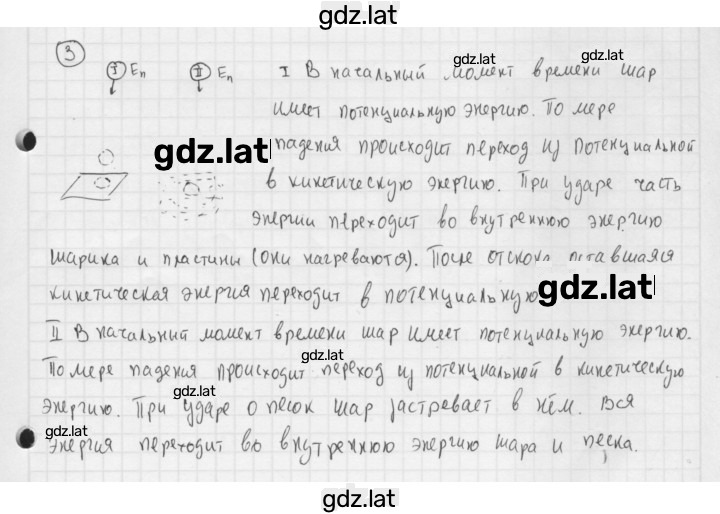 gdz.lat
3
I Eп II Eп I В начальный момент времени шар
gdz.lat
имеет потенциальную энергию. По мере
gdz.lat падения происходит переход из потенциальной
в кинетическую энергию. При ударе часть
энергии переходит во внутреннюю энергию
шарика и пластины (они нагреваются). После отскока оставшаяся
кинетическая энергия переходит в потенциальную
gdz.lat
II В начальный момент времени шар имеет потенциальную энергию.
gdz.lat
По мере падения происходит переход из потенциальной в кинетическую
gdz.lat
энергию. При ударе о песок шар застревает в нём. Вся
gdz.lat
энергия переходит во внутреннюю энергию шара и песка.
gdz.lat